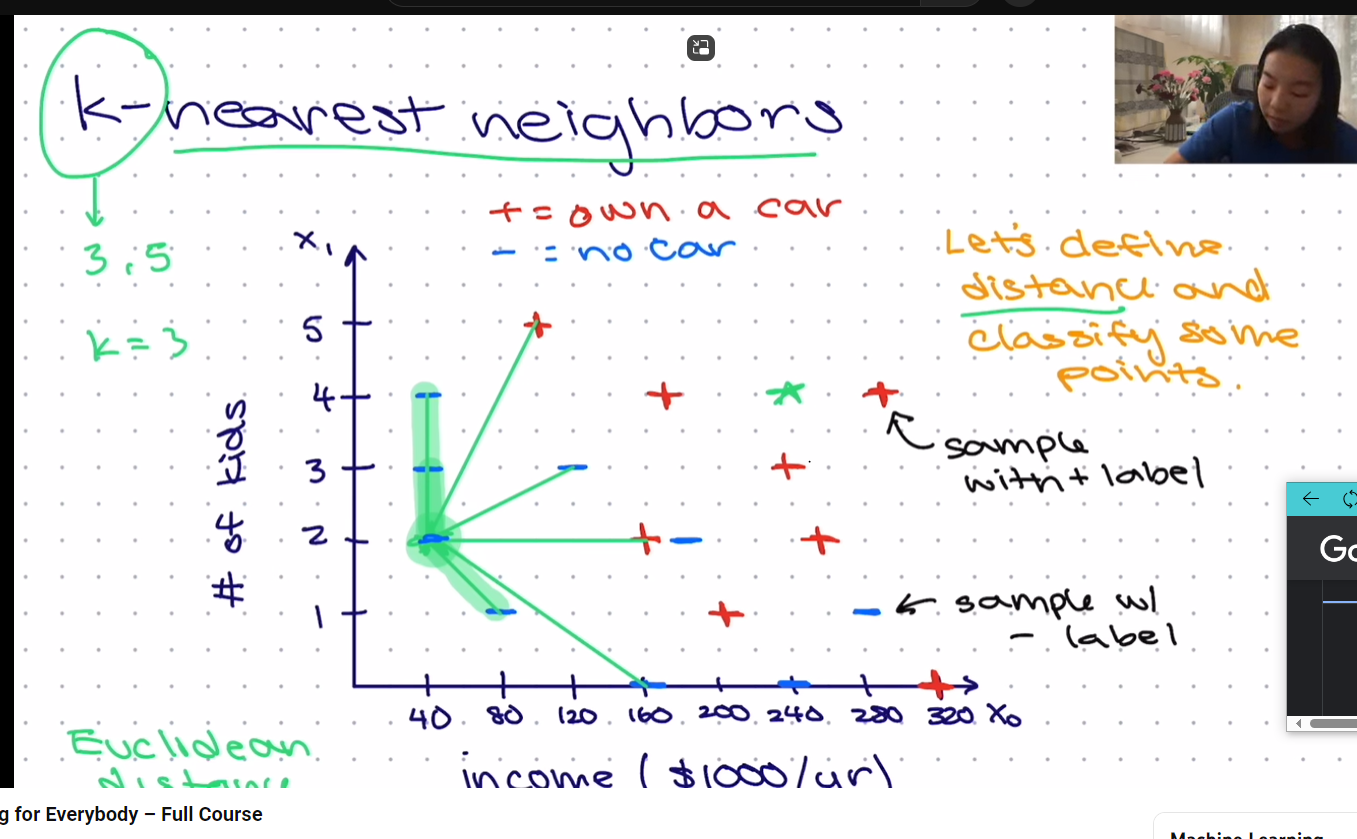 k-nearest neighbors
+ = own a car
- = no car
3, 5
k = 3
Let's define
distance and
classify some
points.
x₁
5
4
3
2
1
# of kids
sample
with + label
sample w/
- label
40 80 120 160 200 240 280 320 x₀
income ($1000/yr)
Euclidean
distance
Go
g for Everybody – Full Course
Machine Learning